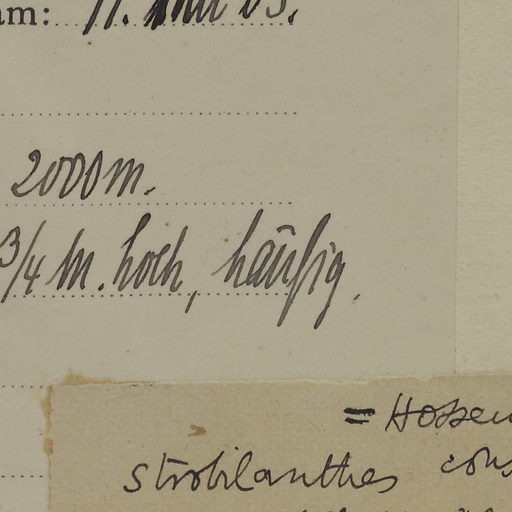 am: 11.
2000 m.
3/4 m. hoch, häufig.
= Hosseu
strobilanthes cons